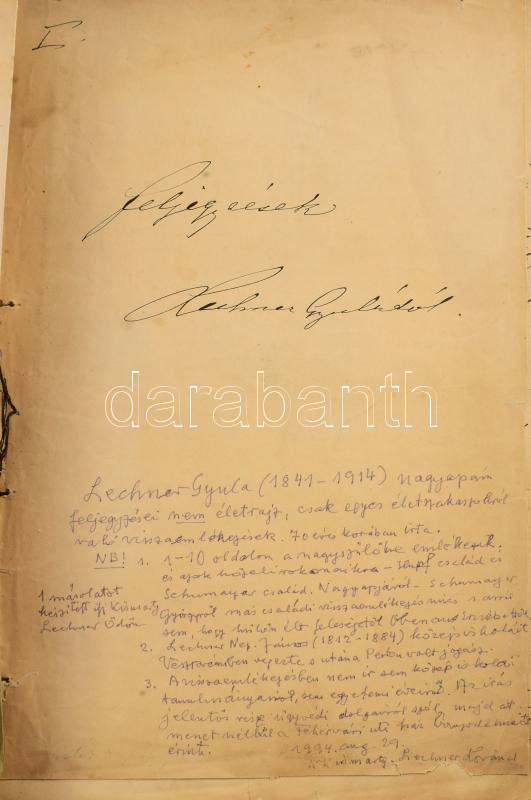 I.
Feljegyzések
Lechner Gyulától.
darabanth
Lechner Gyula (1841–1914) nagyapám
feljegyzései nem életrajz, csak egyes életszakaszokról
való visszaemlékezések. 70 éves korában írta.
NB! 1. 1–10 oldalon a nagyszülőkre emlékezik
és azok közeli rokonaikra – család és
Schumayer család. Nagyapjáról – Schumayer
Györgyről más családi visszaemlékezés nincs s arról
sem, hogy mikor élt feleségétől
1 másolatot
készített ifj
Lechner Ödön
2. Lechner Nep. János (1812–1884) középiskoláit
Veszprémben végezte s utána Pesten volt jogász.
3. A visszaemlékezésben nem ír sem középiskolai
tanulmányairól, sem egyetemi éveiről. Az írás
jelentős része ügyvédi dolgairól szól, majd át-
menet nélkül a Fehérvári uti ház
érinti.
1994. aug. 29.
Lechner Lóránd